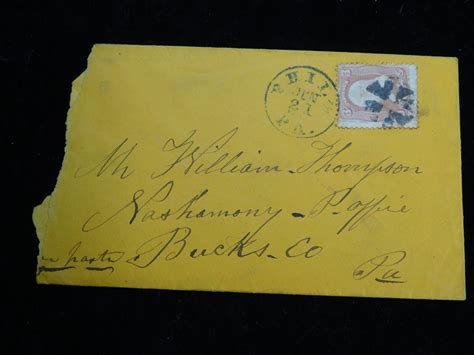 PHILA
JUN
21
PA.
Mr William Thompson
Nashamony P. office
Bucks Co
in haste
Pa